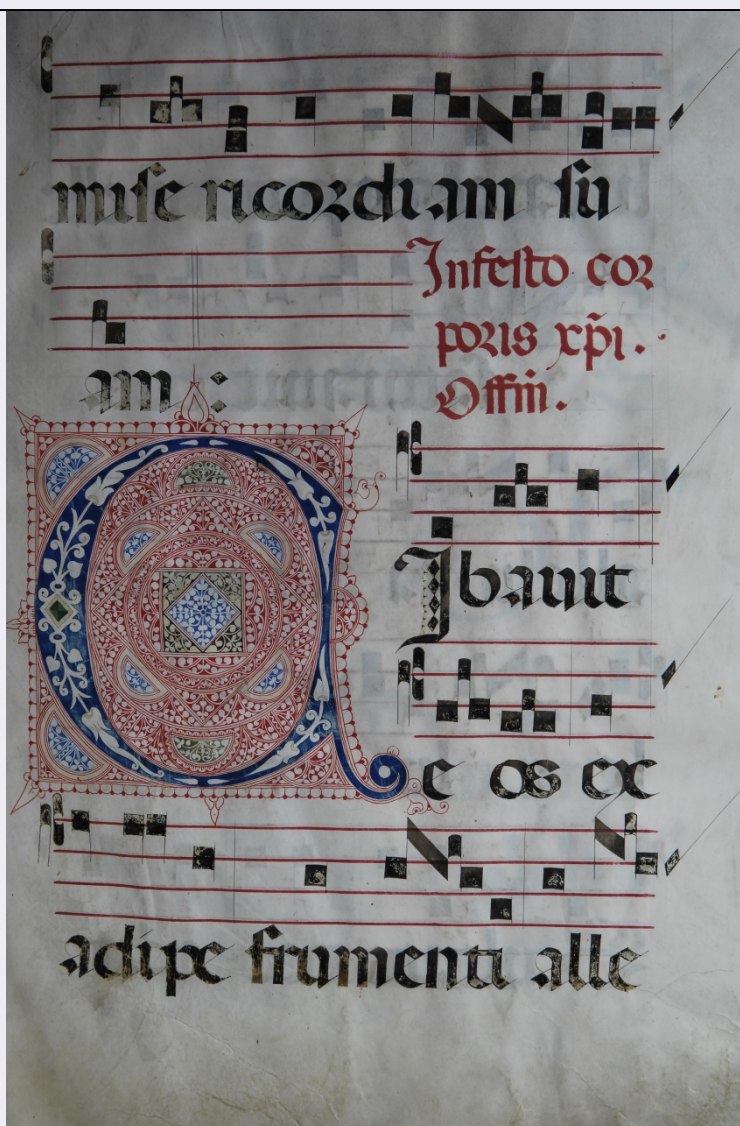 mise ricordi am su
In festo cor
poris xp̃i.
am :
Offiñ.
CIbavit
e os ex
adipe frumenti alle